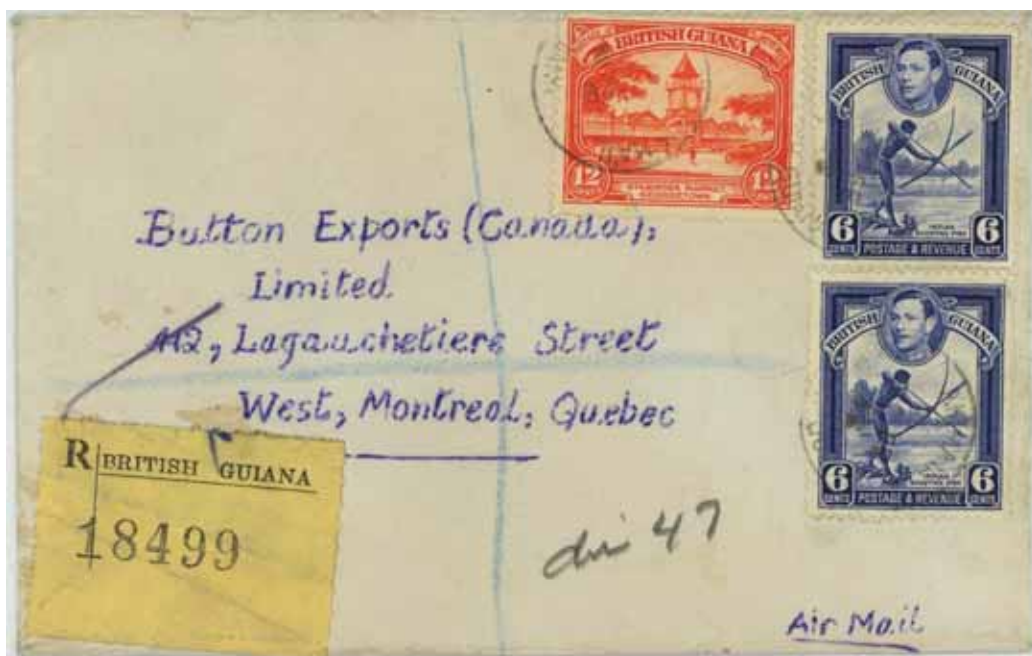 BRITISH GUIANA
12 12
STABROEK MARKET
BRITISH GUIANA
6 6
CENTS POSTAGE & REVENUE CENTS
BRITISH GUIANA
6 6
CENTS POSTAGE & REVENUE CENTS
Button Exports (Canada),
Limited
112, Lagauchetiere Street
West, Montreal, Quebec
R BRITISH GUIANA
18499
47
Air Mail